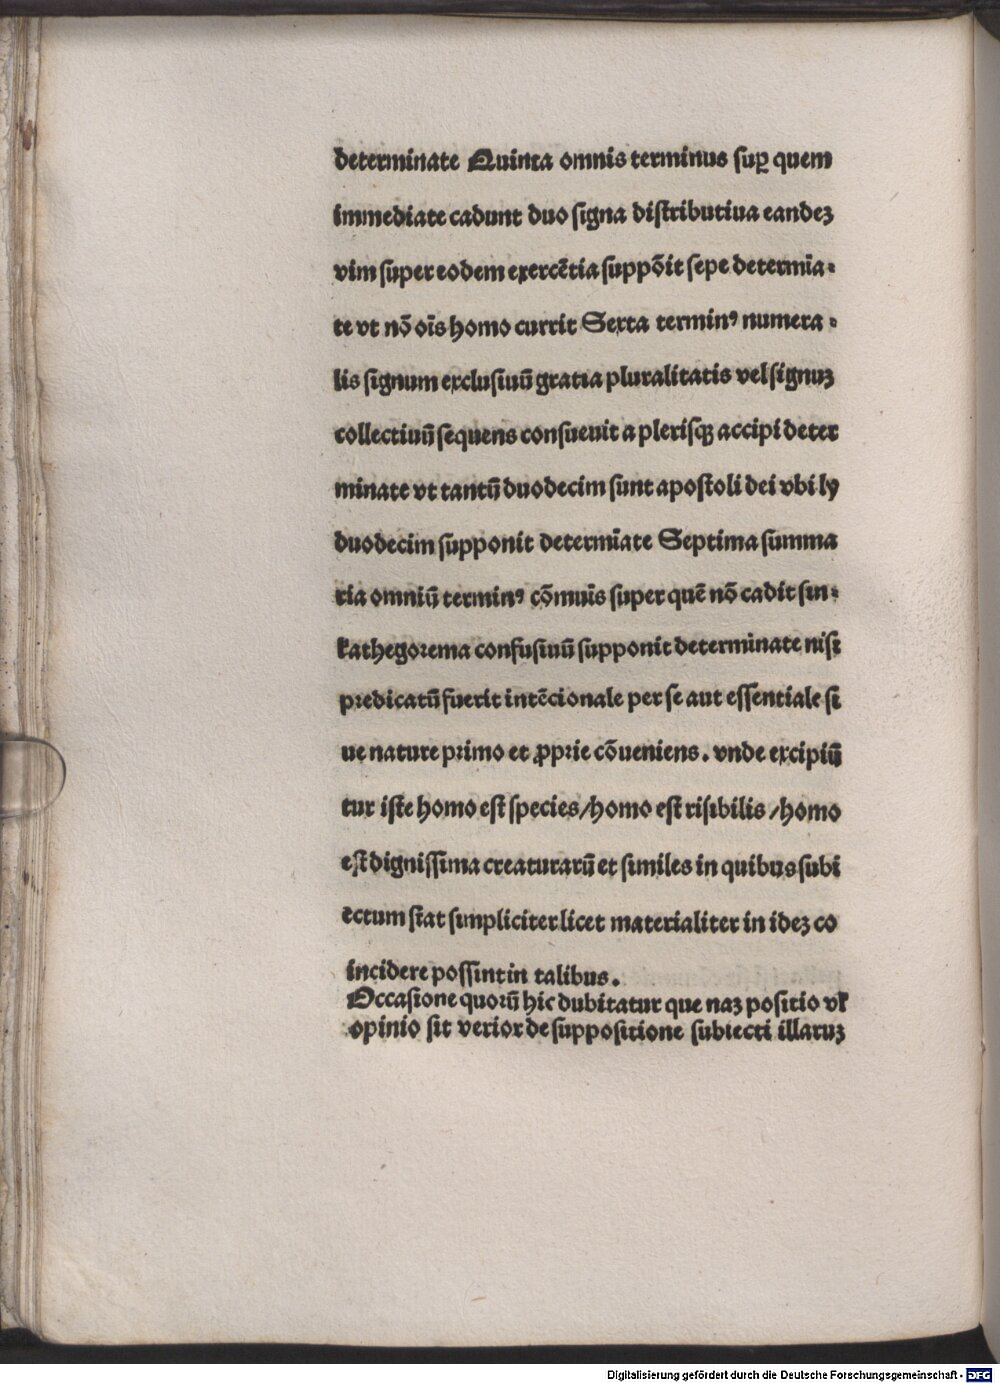 determinate Quinta omnis terminus suꝑ quem
immediate cadunt duo signa distributiua eandeꝫ
vim super eodem exercētia suppōit sepe determīa⸗
te vt nō oīs homo currit Sexta terminꝰ numera⸗
lis signum exclusiuū gratia pluralitatis vel signuꝫ
collectiuū sequens consueuit a plerisqꝫ accipi deter
minate vt tantū duodecim sunt apostoli dei vbi ly
duodecim supponit determīate Septima summa
ria omniū terminꝰ cōmuīs super quē nō cadit sin⸗
kathegorema confusiuū supponit determinate nisi
predicatū fuerit intēcionale per se aut essentiale si
ue nature primo et ꝓprie cōueniens. vnde excipiū
tur iste homo est species/homo est risibilis/homo
est dignissima creaturarū et similes in quibus subi
ectum stat simpliciter licet materialiter in ideꝫ co
incidere possint in talibus.
Occasione quorū hic dubitatur que naꝫ positio vl̄
opinio sit verior de suppositione subiecti illaruꝫ
Digitalisierung gefördert durch die Deutsche Forschungsgemeinschaft - DFG